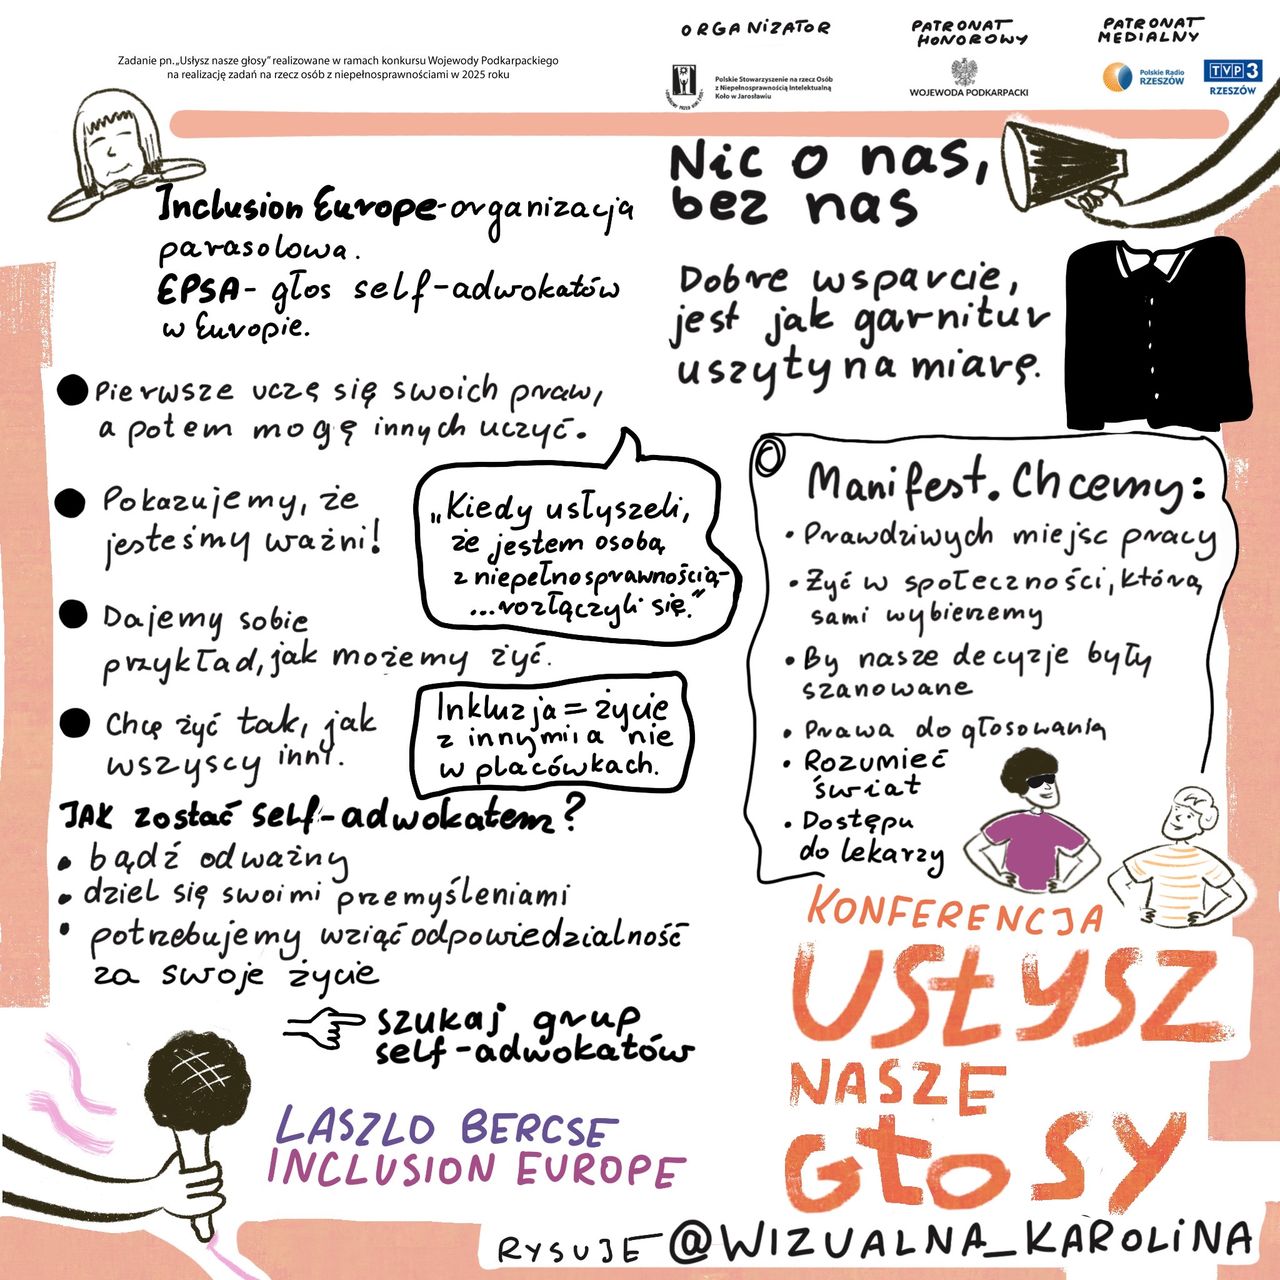 ORGANIZATOR
PATRONAT
HONOROWY
PATRONAT
MEDIALNY
Zadanie pn. „Usłysz nasze głosy” realizowane w ramach konkursu Wojewody Podkarpackiego
na realizację zadań na rzecz osób z niepełnosprawnościami w 2025 roku
Polskie Stowarzyszenie na rzecz Osób
z Niepełnosprawnością Intelektualną
Koło w Jarosławiu
WOJEWODA PODKARPACKI
Polskie Radio
RZESZÓW
TVP3
RZESZÓW
Inclusion Europe - organizacja
parasolowa.
EPSA - głos self-adwokatów
w Europie.
Pierwsze uczę się swoich praw,
a potem mogę innych uczyć.
Pokazujemy, że
jesteśmy ważni!
„Kiedy usłyszeli,
że jestem osobą
z niepełnosprawnością-
...rozłączyli się.”
Dajemy sobie
przykład, jak możemy żyć.
Chcę żyć tak, jak
wszyscy inni.
Inkluzja = życie
z innymi a nie
w placówkach.
JAK zostać self-adwokatem?
• bądź odważny
• dziel się swoimi przemyśleniami
• potrzebujemy wziąć odpowiedzialność
za swoje życie
szukaj grup
self-adwokatów
LASZLO BERCSE
INCLUSION EUROPE
Nic o nas,
bez nas
Dobre wsparcie,
jest jak garnitur
uszyty na miarę.
Manifest. Chcemy:
• Prawdziwych miejsc pracy
• Żyć w społeczności, którą
sami wybierzemy
• By nasze decyzje były
szanowane
• Prawa do głosowania
• Rozumieć
świat
• Dostępu
do lekarzy
KONFERENCJA
USŁYSZ
NASZE
GŁOSY
RYSUJE @WIZUALNA_KAROLINA